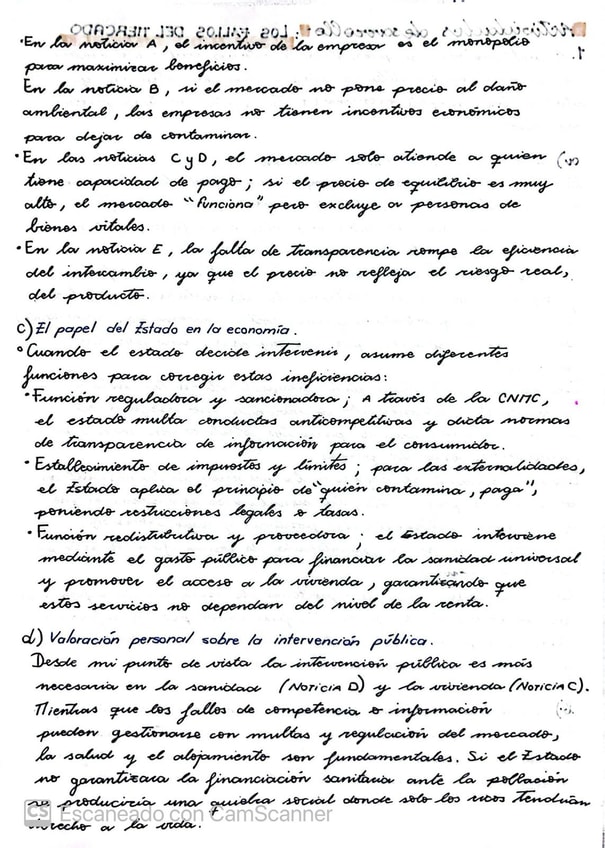 Actividades de desarrollo: LOS FALLOS DEL MERCADO
1.
·En la noticia A, el incentivo de la empresa es el monopolio
para maximizar beneficios.
En la noticia B, si el mercado no pone precio al daño
ambiental, las empresas no tienen incentivos económicos
para dejar de contaminar.
·En las noticias C y D, el mercado solo atiende a quien
tiene capacidad de pago; si el precio de equilibrio es muy
alto, el mercado "funciona" pero excluye a personas de
bienes vitales.
·En la noticia E, la falta de transparencia rompe la eficiencia
del intercambio, ya que el precio no refleja el riesgo real,
del producto.
c) El papel del Estado en la economía.
°Cuando el estado decide intervenir, asume diferentes
funciones para corregir estas ineficiencias:
·Función reguladora y sancionadora; A través de la CNMC,
el estado multa conductas anticompetitivas y dicta normas
de transparencia de información para el consumidor.
·Establecimiento de impuestos y límites; para las externalidades,
el Estado aplica el principio de "quién contamina, paga",
poniendo restricciones legales o tasas.
·Función redistributiva y proveedora; el Estado interviene
mediante el gasto público para financiar la sanidad universal
y promover el acceso a la vivienda, garantizando que
estos servicios no dependan del nivel de la renta.
d) Valoración personal sobre la intervención pública.
Desde mi punto de vista la intervención pública es más
necesaria en la sanidad (NOTICIA D) y la vivienda (NOTICIA C).
Mientras que los fallos de competencia o información
pueden gestionarse con multas y regulación del mercado,
la salud y el alojamiento son fundamentales. Si el Estado
no garantizara la financiación sanitaria ante la población
se produciría una quiebra social donde solo los ricos tendrían
derecho a la vida.
CS Escaneado con CamScanner